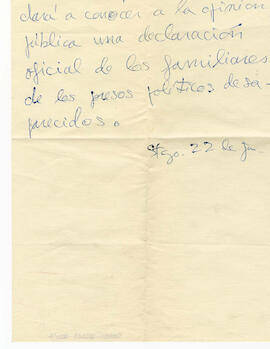 dará a conocer a la opinión
pública una declaración
oficial de los familiares
de los presos políticos desa-
parecidos.
Stgo. 22 de